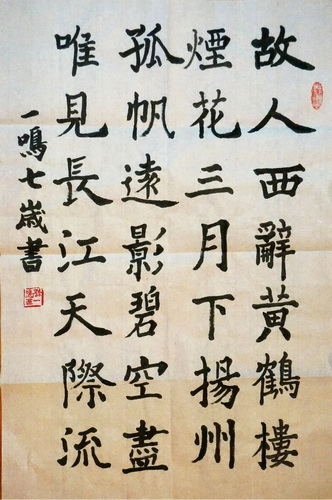 故人西辭黃鶴樓
煙花三月下揚州
孤帆遠影碧空盡
唯見長江天際流
一鳴七歲書